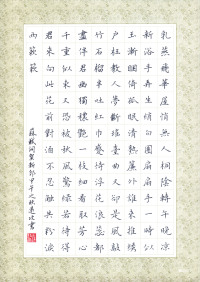 乳燕飛華屋悄無人桐陰轉午晚涼
新浴手弄生綃白團扇扇手一時似
玉漸困倚孤眠清熟簾外誰來推繡
戶枉教人夢斷瑤臺曲又卻是風敲
竹石榴半吐紅巾蹙待浮花浪蕊都
盡伴君幽獨穠艷一枝細看取芳心
千重似束又恐被秋風驚綠若待得
君來向此花前對酒不忍觸共粉淚
兩蔌蔌
蘇軾詞賀新郎甲午之秋書